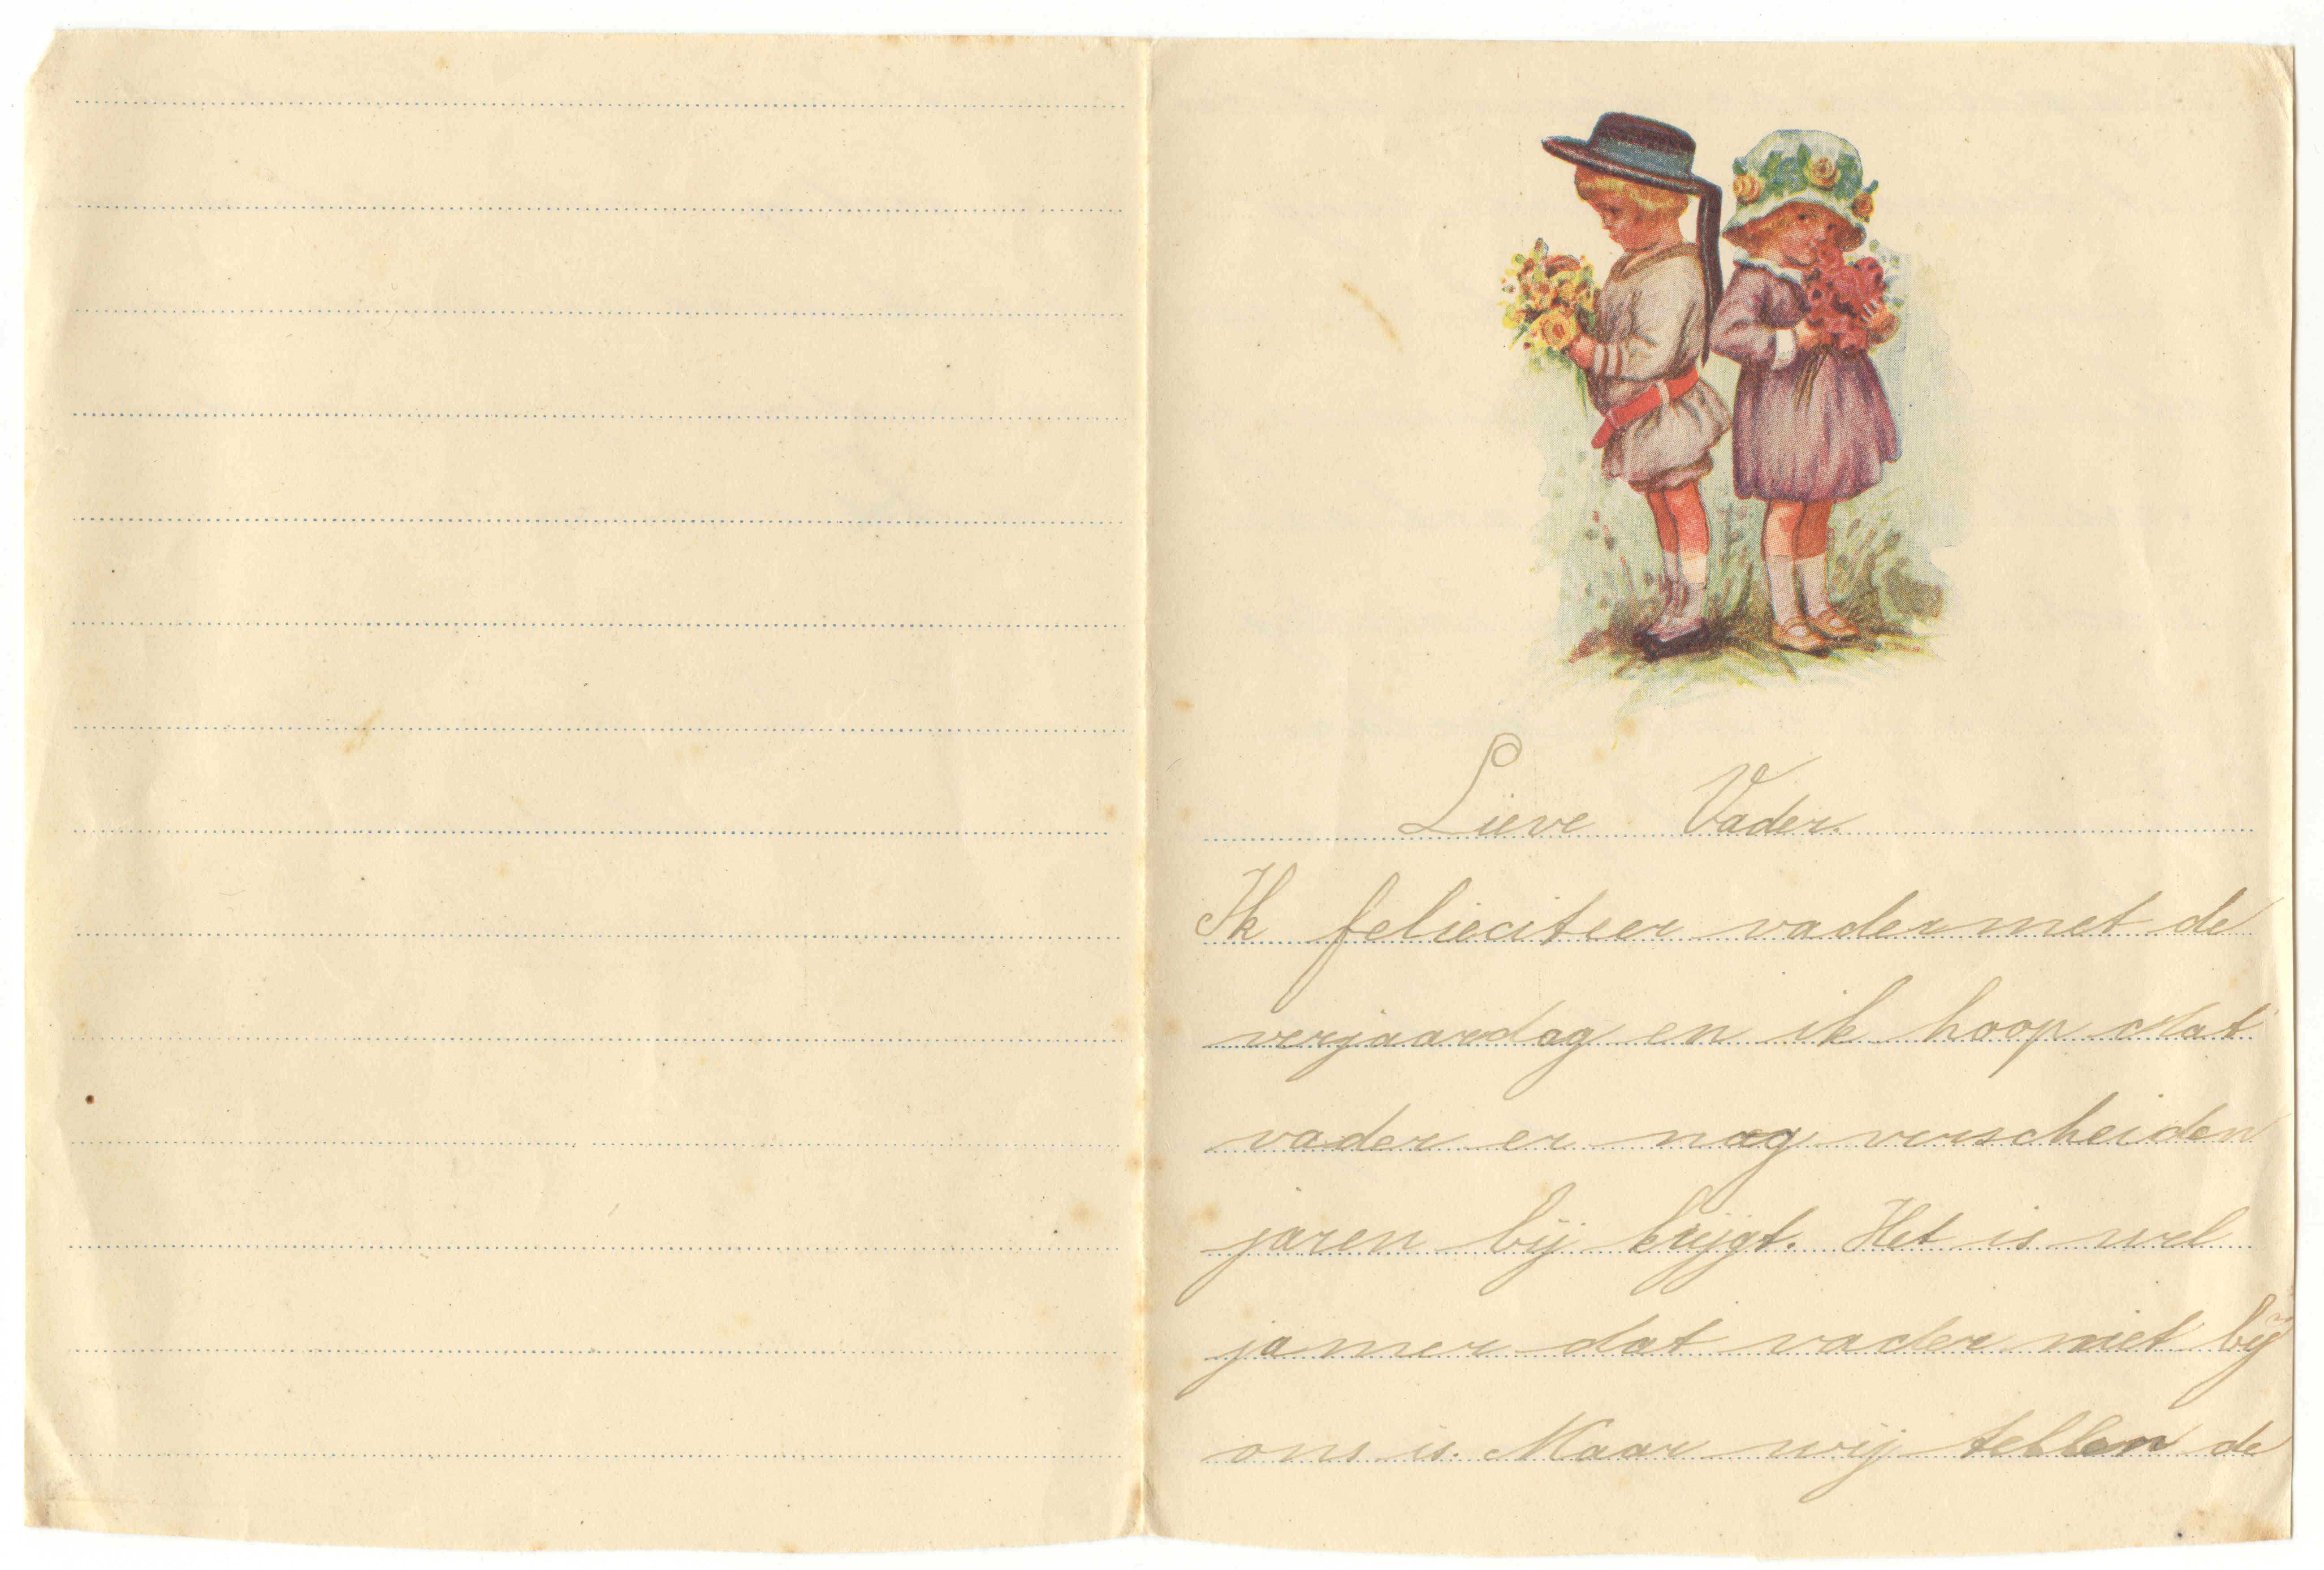 Lieve Vader.
Ik felieciteer vader met de
verjaardag en ik hoop dat
vader er nog verscheiden
jaren bij krijgt. Het is wel
jamer dat vader niet bij
ons is. Maar wij tellen de